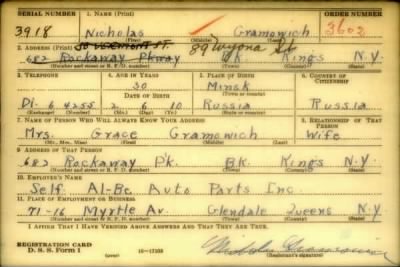 SERIAL NUMBER 1. NAME (Print) ORDER NUMBER
3918 Nicholas Gramowich 3602
(First) (Middle) (Last)
2. ADDRESS (Print) 89 Wyona St
682 Rockaway Pkway Bk Kings N.Y.
(Number and street or R. F. D. number) (Town) (County) (State)
3. TELEPHONE 4. AGE IN YEARS 5. PLACE OF BIRTH 6. COUNTRY OF CITIZENSHIP
30 Minsk
DATE OF BIRTH (Town or county)
DI. 6 4255 2 6 10 Russia Russia
(Exchange) (Number) (Mo.) (Day) (Yr.) (State or country)
7. NAME OF PERSON WHO WILL ALWAYS KNOW YOUR ADDRESS 8. RELATIONSHIP OF THAT PERSON
Mrs. Grace Gramowich Wife
(Mr., Mrs., Miss) (First) (Middle) (Last)
9. ADDRESS OF THAT PERSON
682 Rockaway Pk. Bk. Kings N.Y.
(Number and street or R. F. D. number) (Town) (County) (State)
10. EMPLOYER'S NAME
Self Al-Be Auto Parts Inc.
11. PLACE OF EMPLOYMENT OR BUSINESS
71-16 Myrtle Av. Glendale Queens N.Y.
(Number and street or R. F. D. number) (Town) (County) (State)
I AFFIRM THAT I HAVE VERIFIED ABOVE ANSWERS AND THAT THEY ARE TRUE.
REGISTRATION CARD
D. S. S. Form 1 (over) 16—17105 (Registrant's signature)